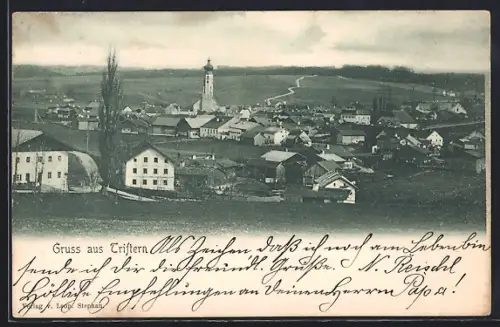 Gruss aus Triftern
Als Zeichen daß ich noch am Leben bin
sende ich dir die freundl. Grüße. N. Reischl
Höfliche Empfehlungen an Deinen Herrn Papa!
Verlag v. Leop. Stephan.